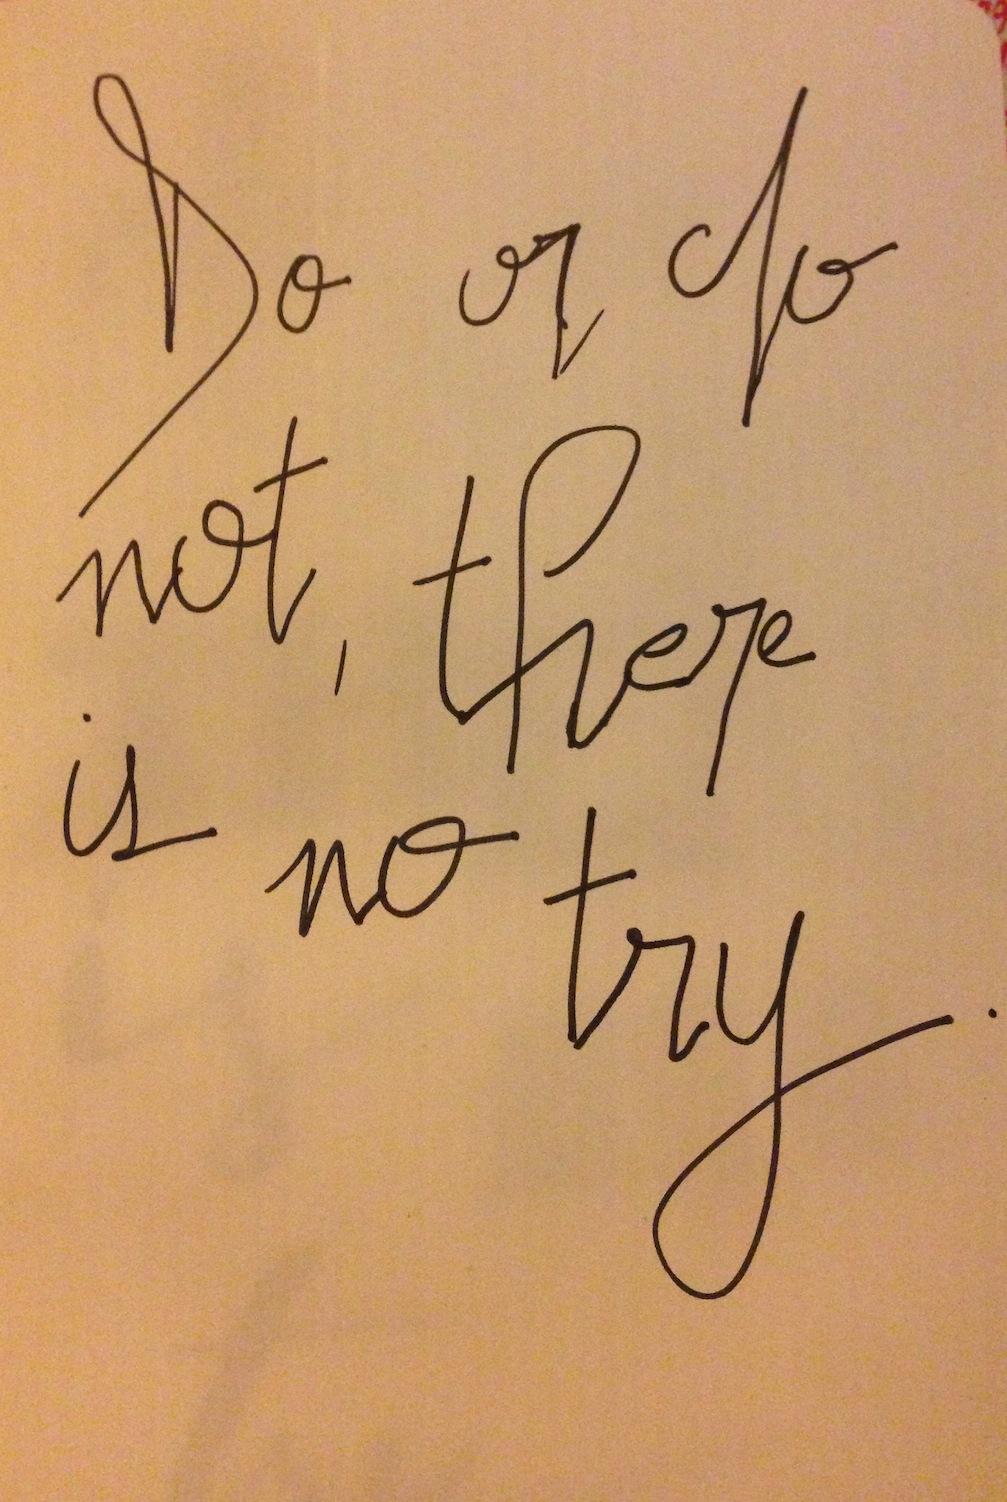 Do or do
not, there
is no try.